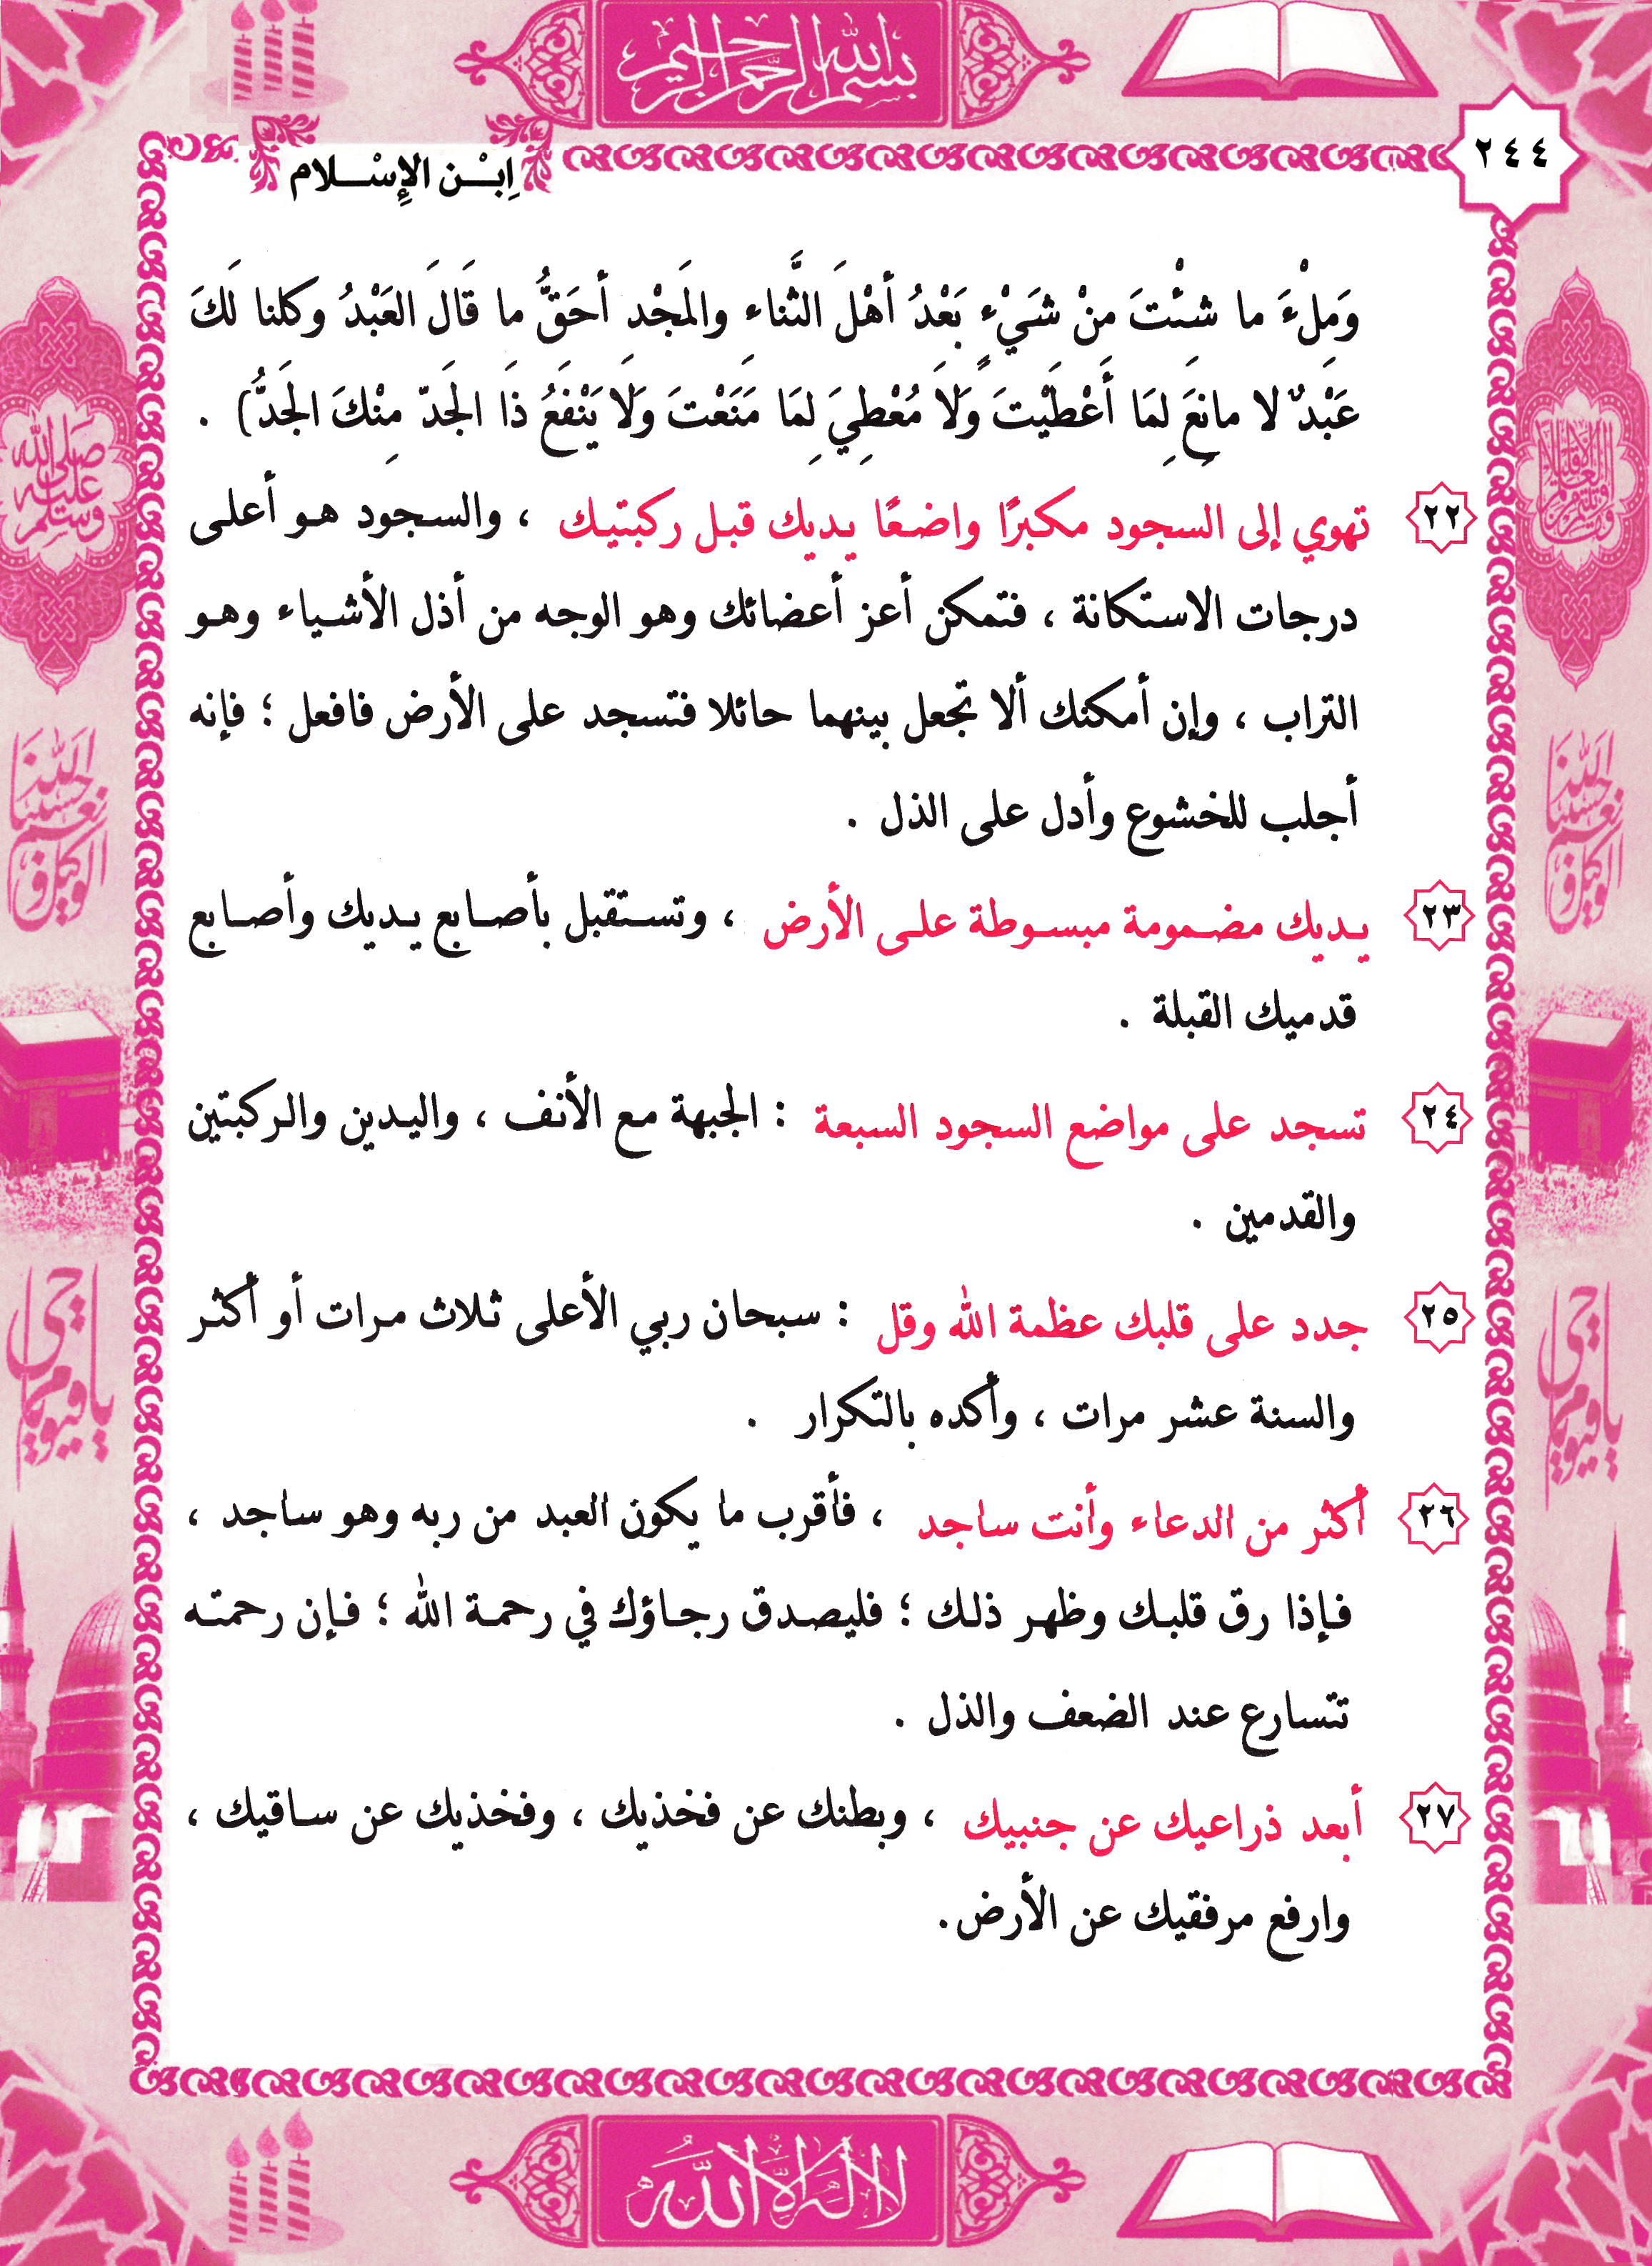 بسم الله الرحمن الرحيم
٢٤٤
اِبْـن الإِسْـلام
وَمِلْءَ ما شئْتَ مِنْ شَيْءٍ بَعْدُ أهْلَ الثَّناءِ والمَجْدِ أحَقُّ ما قَالَ العَبْدُ وكلنا لَكَ
عَبْدٌ لا مانِعَ لِمَا أَعْطَيْتَ وَلَا مُعْطِيَ لِمَا مَنَعْتَ وَلَا يَنْفَعُ ذَا الجَدّ مِنْكَ الجَدُّ) .
٢٢ تهوي إلى السجود مكبرًا واضعًا يديك قبل ركبتيك ، والسجود هو أعلى
درجات الاستكانة ، فتمكن أعز أعضائك وهو الوجه من أذل الأشياء وهو
التراب ، وإن أمكنك ألا تجعل بينهما حائلا فتسجد على الأرض فافعل ؛ فإنه
أجلب للخشوع وأدل على الذل .
٢٣ يديك مضمومة مبسوطة على الأرض ، وتستقبل بأصابع يديك وأصابع
قدميك القبلة .
٢٤ تسجد على مواضع السجود السبعة : الجبهة مع الأنف ، واليدين والركبتين
والقدمين .
٢٥ جدد على قلبك عظمة الله وقل : سبحان ربي الأعلى ثلاث مرات أو أكثر
والسنة عشر مرات ، وأكده بالتكرار .
٢٦ أكثر من الدعاء وأنت ساجد ، فأقرب ما يكون العبد من ربه وهو ساجد ،
فإذا رق قلبك وظهر ذلك ؛ فليصدق رجاؤك في رحمة الله ؛ فإن رحمته
تتسارع عند الضعف والذل .
٢٧ أبعد ذراعيك عن جنبيك ، وبطنك عن فخذيك ، وفخذيك عن ساقيك ،
وارفع مرفقيك عن الأرض.
صلى الله عليه وسلم
حسبنا الله ونعم الوكيل
يا حي يا قيوم
حسبنا الله ونعم الوكيل
يا حي يا قيوم
لا إله إلا الله